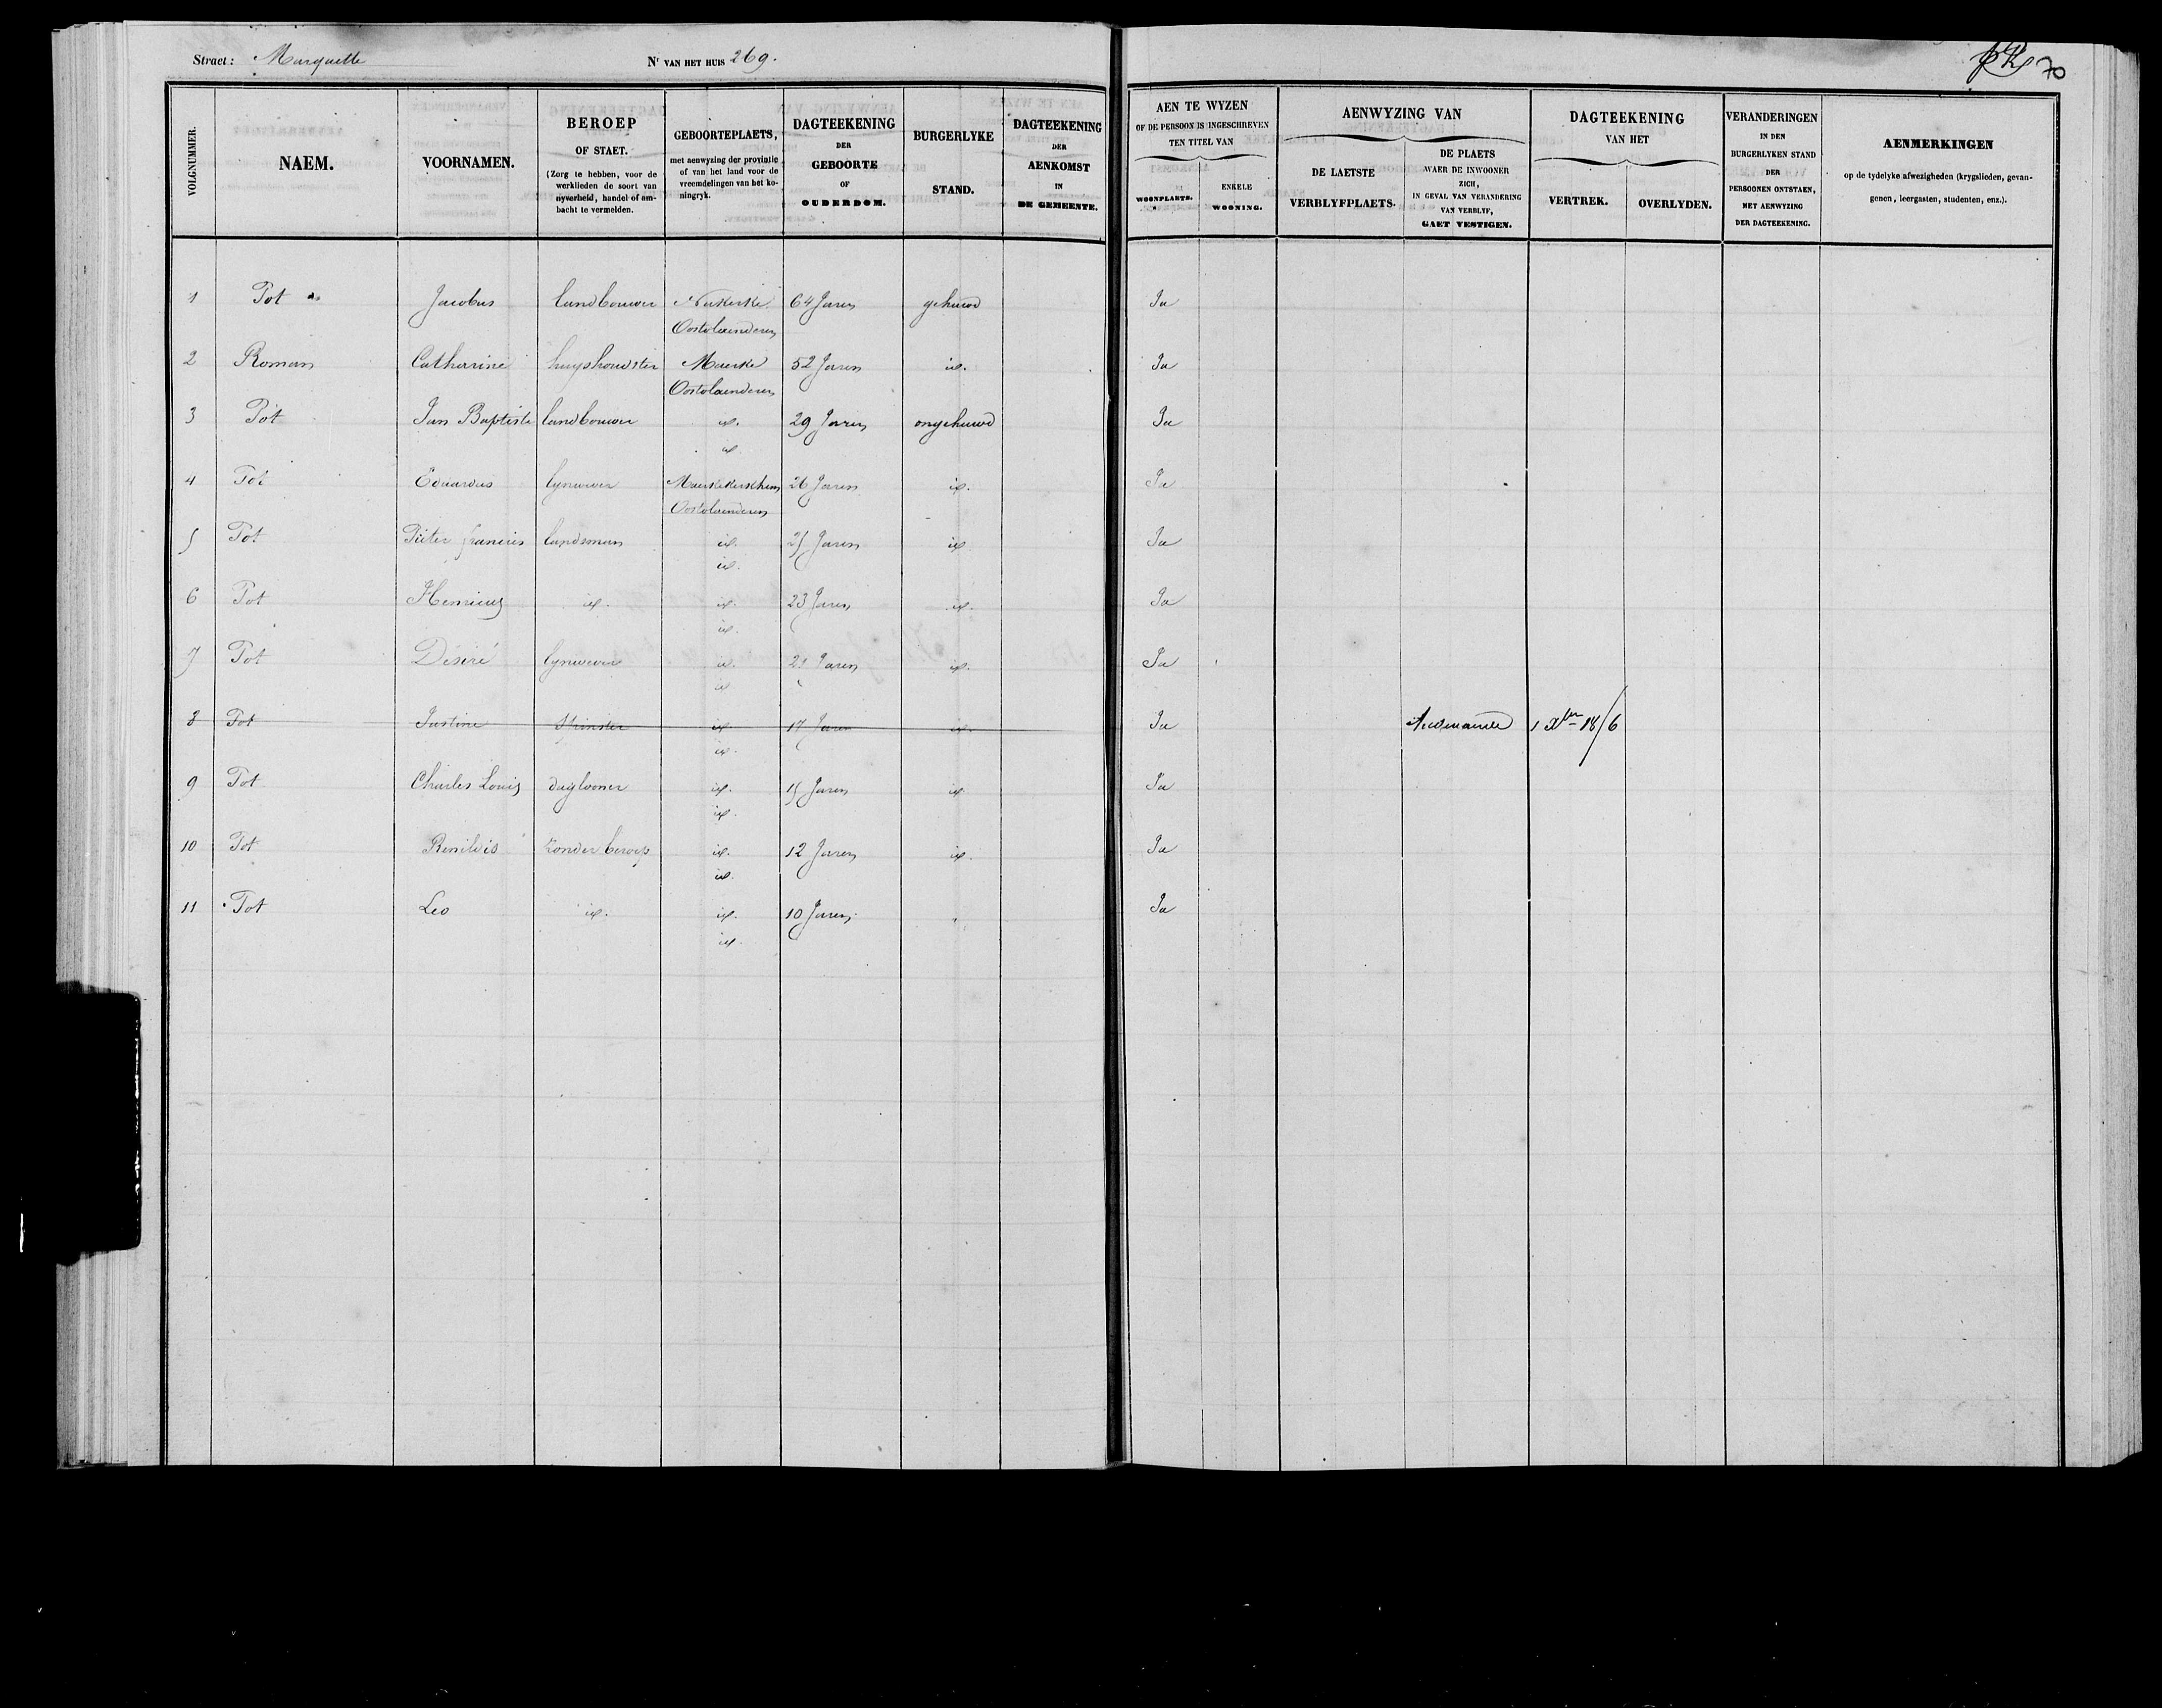 Straet: Marquette Nr VAN HET HUIS 269. 70
VOLGNUMMER. NAEM. VOORNAMEN. BEROEP OF STAET. (Zorg te hebben, voor de werklieden de soort van nyverheid, handel of ambacht te vermelden. GEBOORTEPLAETS, met aenwyzing der provintie of van het land voor de vreemdelingen van het koningryk. DAGTEEKENING DER GEBOORTE OF OUDERDOM. BURGERLYKE STAND. DAGTEEKENING DER AENKOMST IN DE GEMEENTE.
AEN TE WYZEN OF DE PERSOON IS INGESCHREVEN TEN TITEL VAN WOONPLAETS. ENKELE WOONING. AENWYZING VAN DE LAETSTE VERBLYFPLAETS. DE PLAETS WAER DE INWOONER ZICH, IN GEVAL VAN VERANDERING VAN VERBLYF, GAET VESTIGEN. DAGTEEKENING VAN HET VERTREK. OVERLYDEN. VERANDERINGEN IN DEN BURGERLYKEN STAND DER PERSOONEN ONTSTAEN, MET AENWYZING DER DAGTEEKENING. AENMERKINGEN op de tydelyke afwezigheden (krygslieden, gevangenen, leergasten, studenten, enz.).
1 Tot Jacobus landbouwer Nukerke 64 Jaren gehuwd Ja
Oostvlaenderen
2 Roman Catharine huyshoudster Maerke 52 Jaren id. Ja
Oostvlaenderen
3 Tot Jan Baptiste landbouwer id. 29 Jaren ongehuwd Ja
id.
4 Tot Eduardus lynwever Maerkekerkhem 26 Jaren id. Ja
Oostvlaenderen
5 Tot Pieter francies landsman id. 25 Jaren id Ja
id.
6 Tot Henricus id. id. 23 Jaren id. Ja
id.
7 Tot Désiré lynwever id. 21 Jaren id. Ja
id
8 Tot Justine Spinster id 17 Jaren id. Ja 1 Xber 1856
id.
9 Tot Charles Louis daglooner id. 15 Jaren id. Ja
id.
10 Tot Renildis zonder beroep id. 12 Jaren id. Ja
id.
11 Tot Leo id. id. 10 Jaren. " Ja
id.